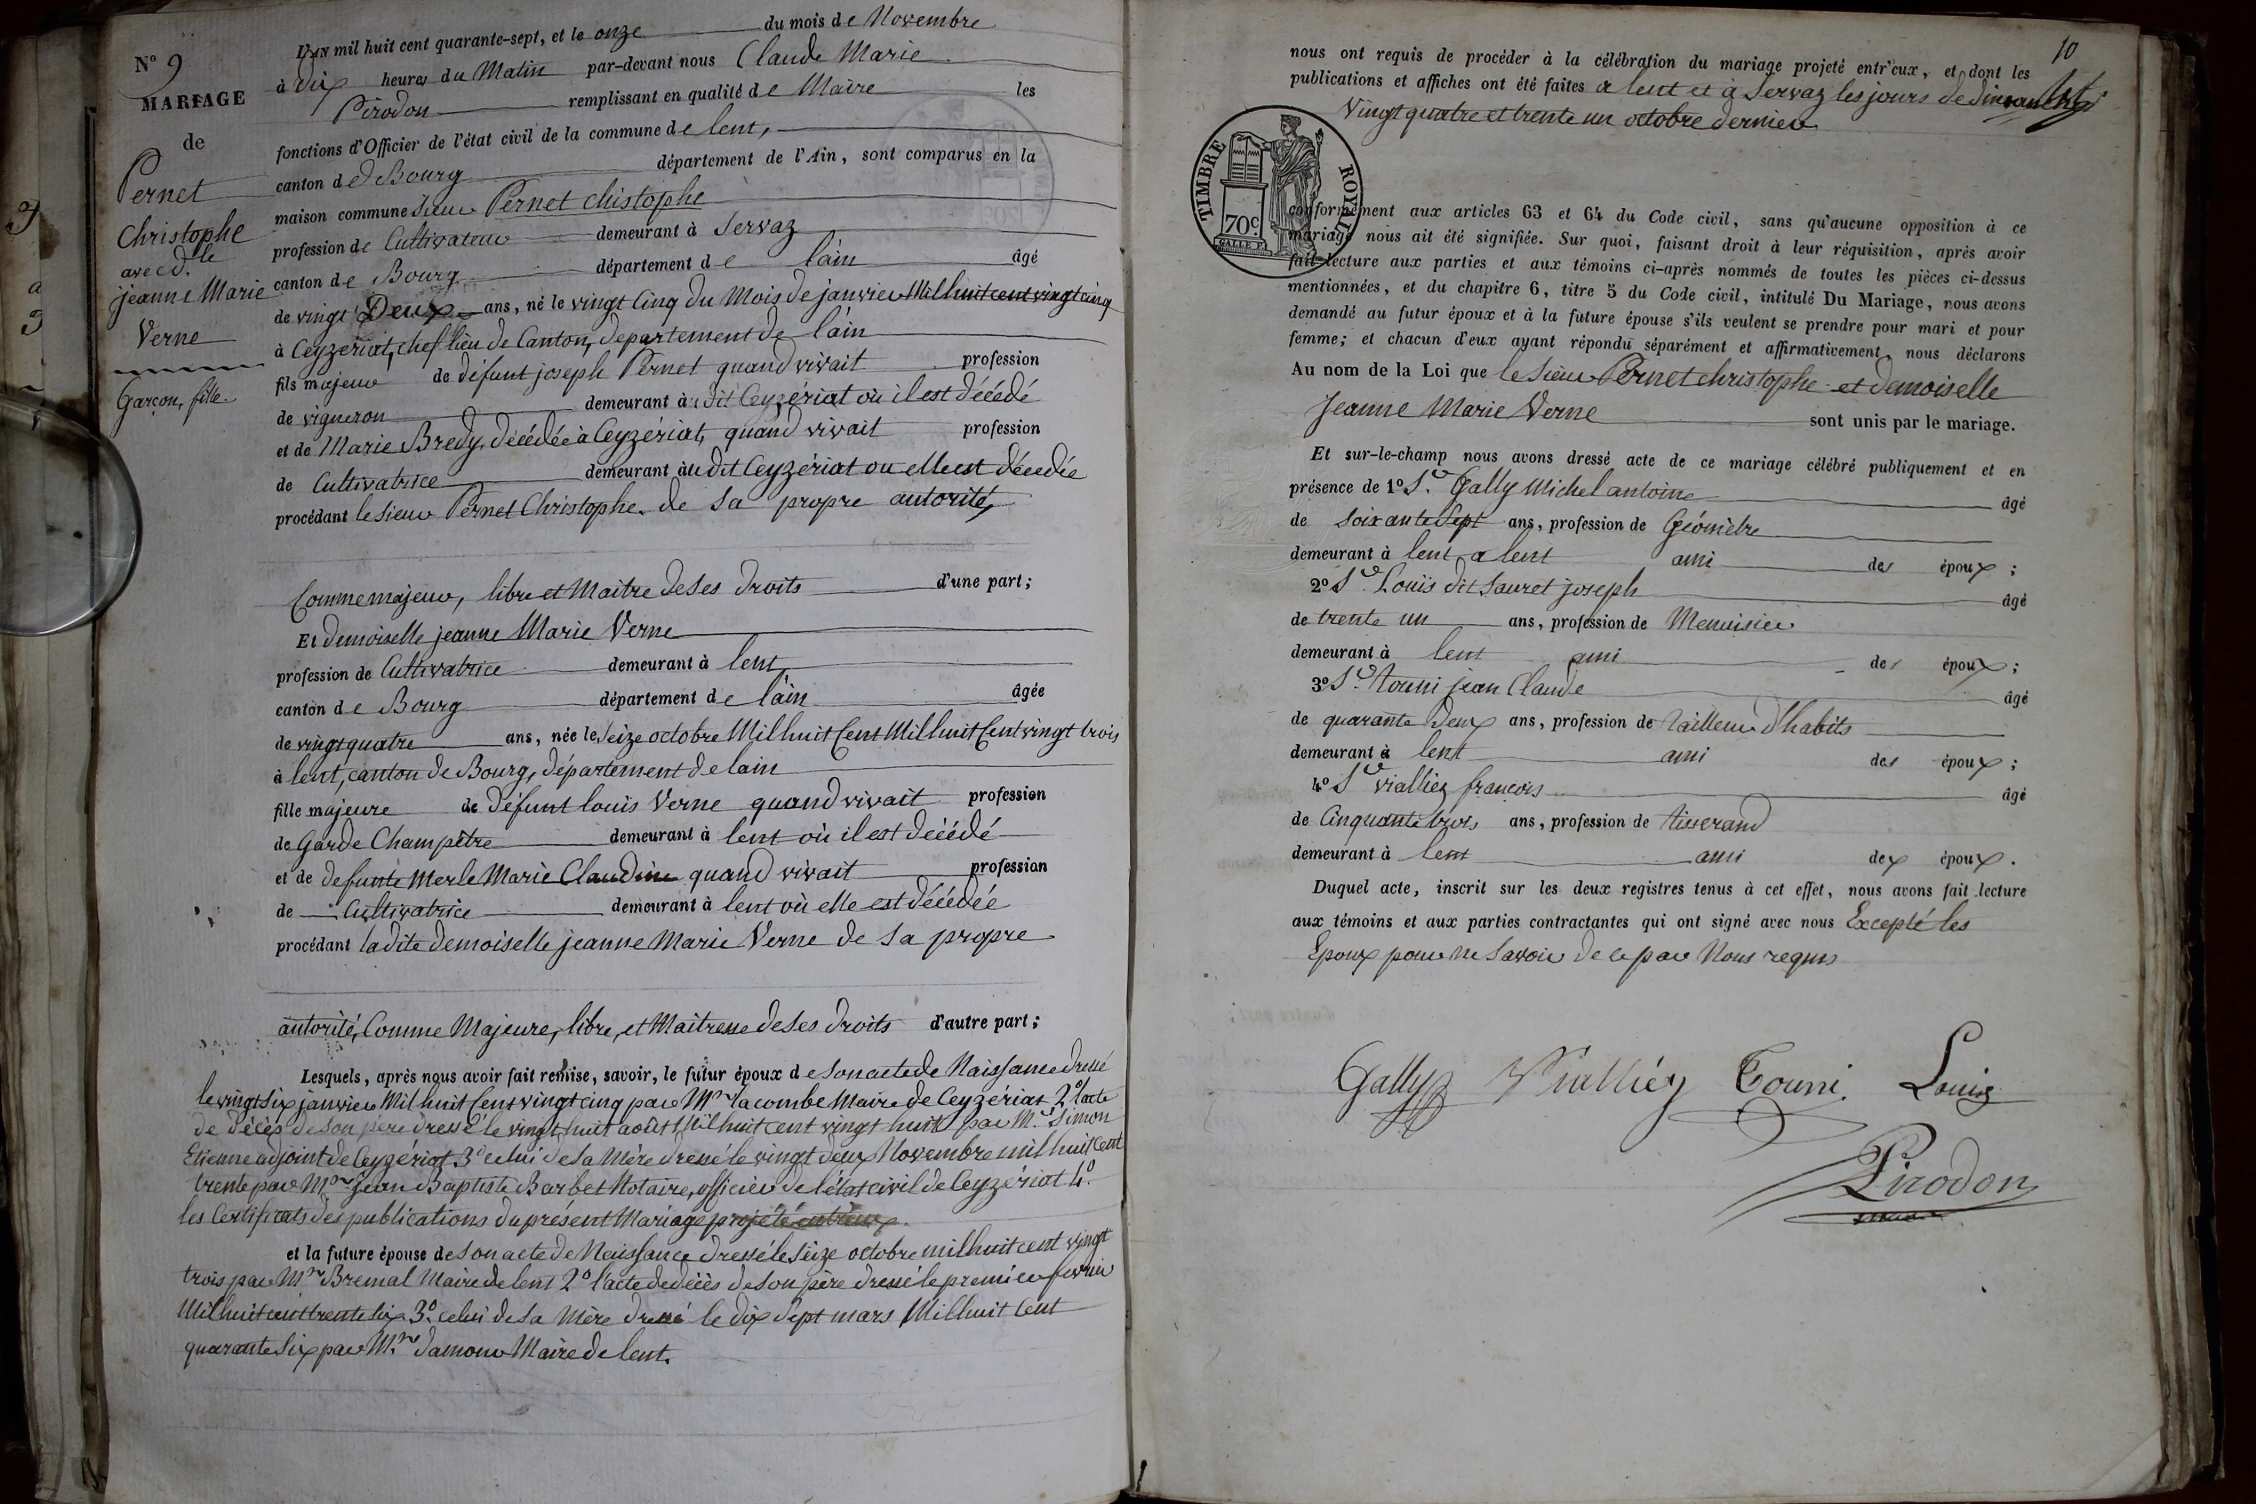 N° 9
MARIAGE
de
Pernet
Christophe
avec d.lle
jeanne Marie
Verne
Garçon, fille.
L'AN mil huit cent quarante-sept, et le onze du mois de Novembre
à dix heures du Matin par-devant nous Claude Marie
Pirodon remplissant en qualité de Maire les
fonctions d'Officier de l'état civil de la commune de lent,
canton de Bourg département de l'Ain, sont comparus en la
maison commune sieur Pernet christophe
profession de Cultivateur demeurant à Servaz
canton de Bourg département de l'ain âgé
de vingt Deux ans, né le vingt Cinq du Mois de janvier Mil huit cent vingt cinq
à Ceyzériat, chef lieu de Canton, departement de l'ain
fils majeur de défunt joseph Pernet quand vivait profession
de vigneron demeurant au dit Ceyzériat où il est décédé
et de Marie Bredy, décédée à Ceyzériat, quand vivait profession
de Cultivatrice demeurant au dit Ceyzériat ou elle est décédée
procédant le sieur Pernet Christophe de sa propre autorité,
Comme majeur, libre et Maitre de ses droits d'une part;
Et demoiselle jeanne Marie Verne
profession de Cultivatrice demeurant à lent,
canton de Bourg département de l'ain âgée
de vingt quatre ans, née le Seize octobre Mil huit Cent Mil huit Cent vingt trois
à lent, canton de Bourg, département de lain
fille majeure de défunt louis Verne quand vivait profession
de Garde Champêtre demeurant à lent où il est décédé
et de defunte Merle Marie Claudine quand vivait profession
de Cultivatrice demeurant à lent où elle est décédée
procédant la dite demoiselle jeanne Marie Verne de sa propre
autorité, Comme Majeure, libre, et Maitresse de ses droits d'autre part;
Lesquels, après nous avoir fait remise, savoir, le futur époux de son acte de Naissance dressé
le vingt six janvier Mil huit Cent vingt cinq par Mr lacombe Maire de Ceyzériat 2° l'acte
de décès de son père dressé le vingt huit août Mil huit cent vingt huit par Mr Simon
Etienne adjoint de Ceyzériat 3° celui de sa Mère dressé le vingt deux Novembre mil huit Cent
trente par Mr Jean Baptiste Barbet Notaire, officier de l'état civil de Ceyzériat 4°
les Certificats des publications du présent Mariage projeté entr'eux.
et la future épouse de son acte de Naissance dressé le Seize octobre mil huit cent vingt
trois par Mr Bremal Maire de lent 2° l'acte de décès de son père dressé le premier fevrier
Mil huit cent trente six 3° celui de sa Mère dressé le dix Sept mars Mil huit Cent
quarante six par Mr damour Maire de lent.
10
nous ont requis de procéder à la célébration du mariage projeté entr'eux, et dont les
publications et affiches ont été faites à lent et à Servaz les jours de dimanche
Vingt quatre et trente un octobre dernier
TIMBRE ROYAL
70c.
conformément aux articles 63 et 64 du Code civil, sans qu'aucune opposition à ce
mariage nous ait été signifiée. Sur quoi, faisant droit à leur réquisition, après avoir
fait lecture aux parties et aux témoins ci-après nommés de toutes les pièces ci-dessus
mentionnées, et du chapitre 6, titre 5 du Code civil, intitulé Du Mariage, nous avons
demandé au futur époux et à la future épouse s'ils veulent se prendre pour mari et pour
femme; et chacun d'eux ayant répondu séparément et affirmativement, nous déclarons
Au nom de la Loi que le sieur Pernet christophe et demoiselle
Jeanne Marie Verne sont unis par le mariage.
Et sur-le-champ nous avons dressé acte de ce mariage célébré publiquement et en
présence de 1° Sr. Gally Michel antoine âgé
de soixante Sept ans, profession de Géomètre
demeurant à lent, a lent ami des époux;
2° Sr. Louis dit Sauret joseph âgé
de trente un ans, profession de Menuisier
demeurant à lent ami des époux;
3° Sr. Touni jean Claude âgé
de quarante Deux ans, profession de tailleur d'habits
demeurant à lent ami des époux;
4° Sr vialliez françois âgé
de Cinquante trois ans, profession de tisserand
demeurant à lent ami dex époux.
Duquel acte, inscrit sur les deux registres tenus à cet effet, nous avons fait lecture
aux témoins et aux parties contractantes qui ont signé avec nous Excepté les
Epoux pour ne savoir de ce par Nous requis
Gally Vialliéz Touni Louis
Pirodon